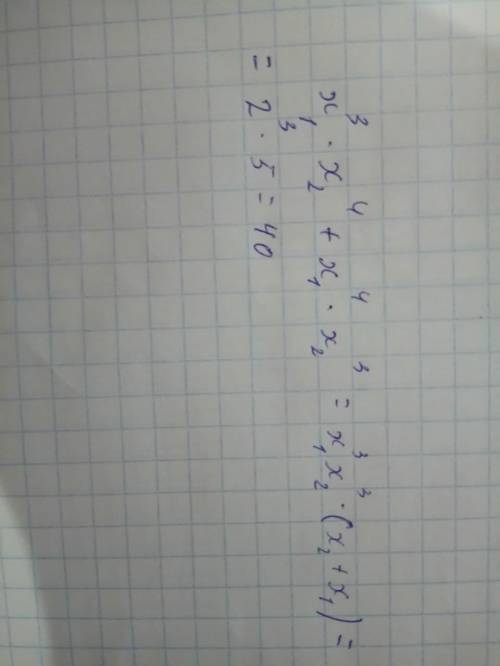 x₁³ · x₂⁴ + x₁⁴ · x₂³ = x₁³x₂³ · (x₂ + x₁) =
= 2³ · 5 = 40